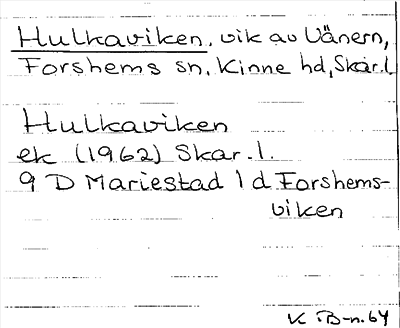 Hulkaviken, vik av Vänern,
Forshems sn, Kinne hd, Skar.l.
Hulkaviken
ek (1962) Skar.l.
9 D Mariestad 1 d Forshems-
viken
K. B-n. 64